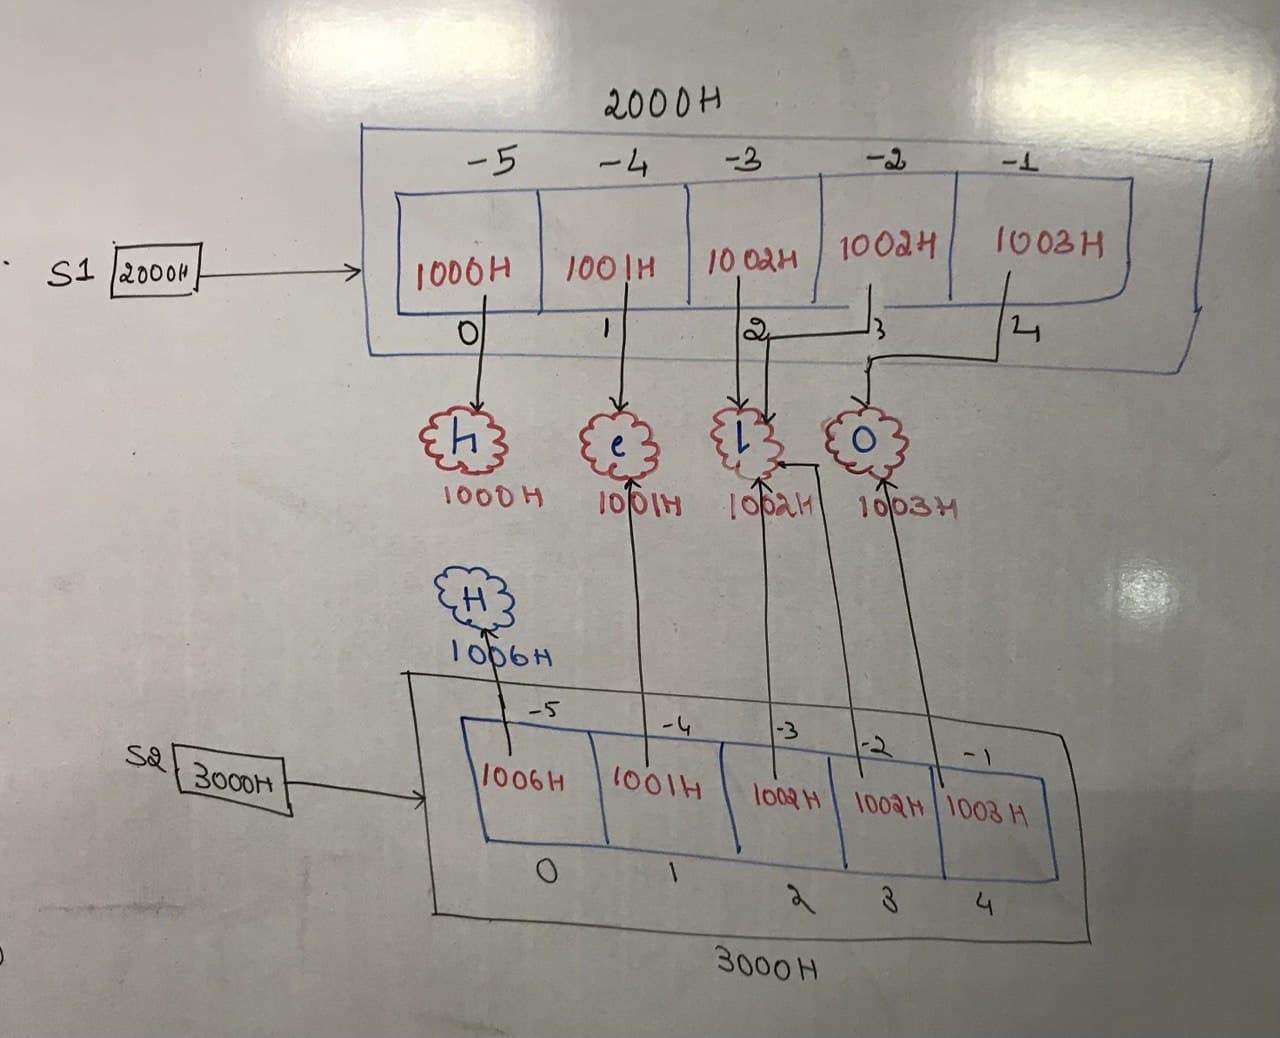 2000H
-5 -4 -3 -2 -1
S1 2000H 1000H 1001H 1002H 1002H 1003H
0 1 2 3 4
h e l o
1000H 1001H 1002H 1003H
H
1006H
-5 -4 -3 -2 -1
S2 3000H 1006H 1001H 1002H 1002H 1003H
0 1 2 3 4
3000H